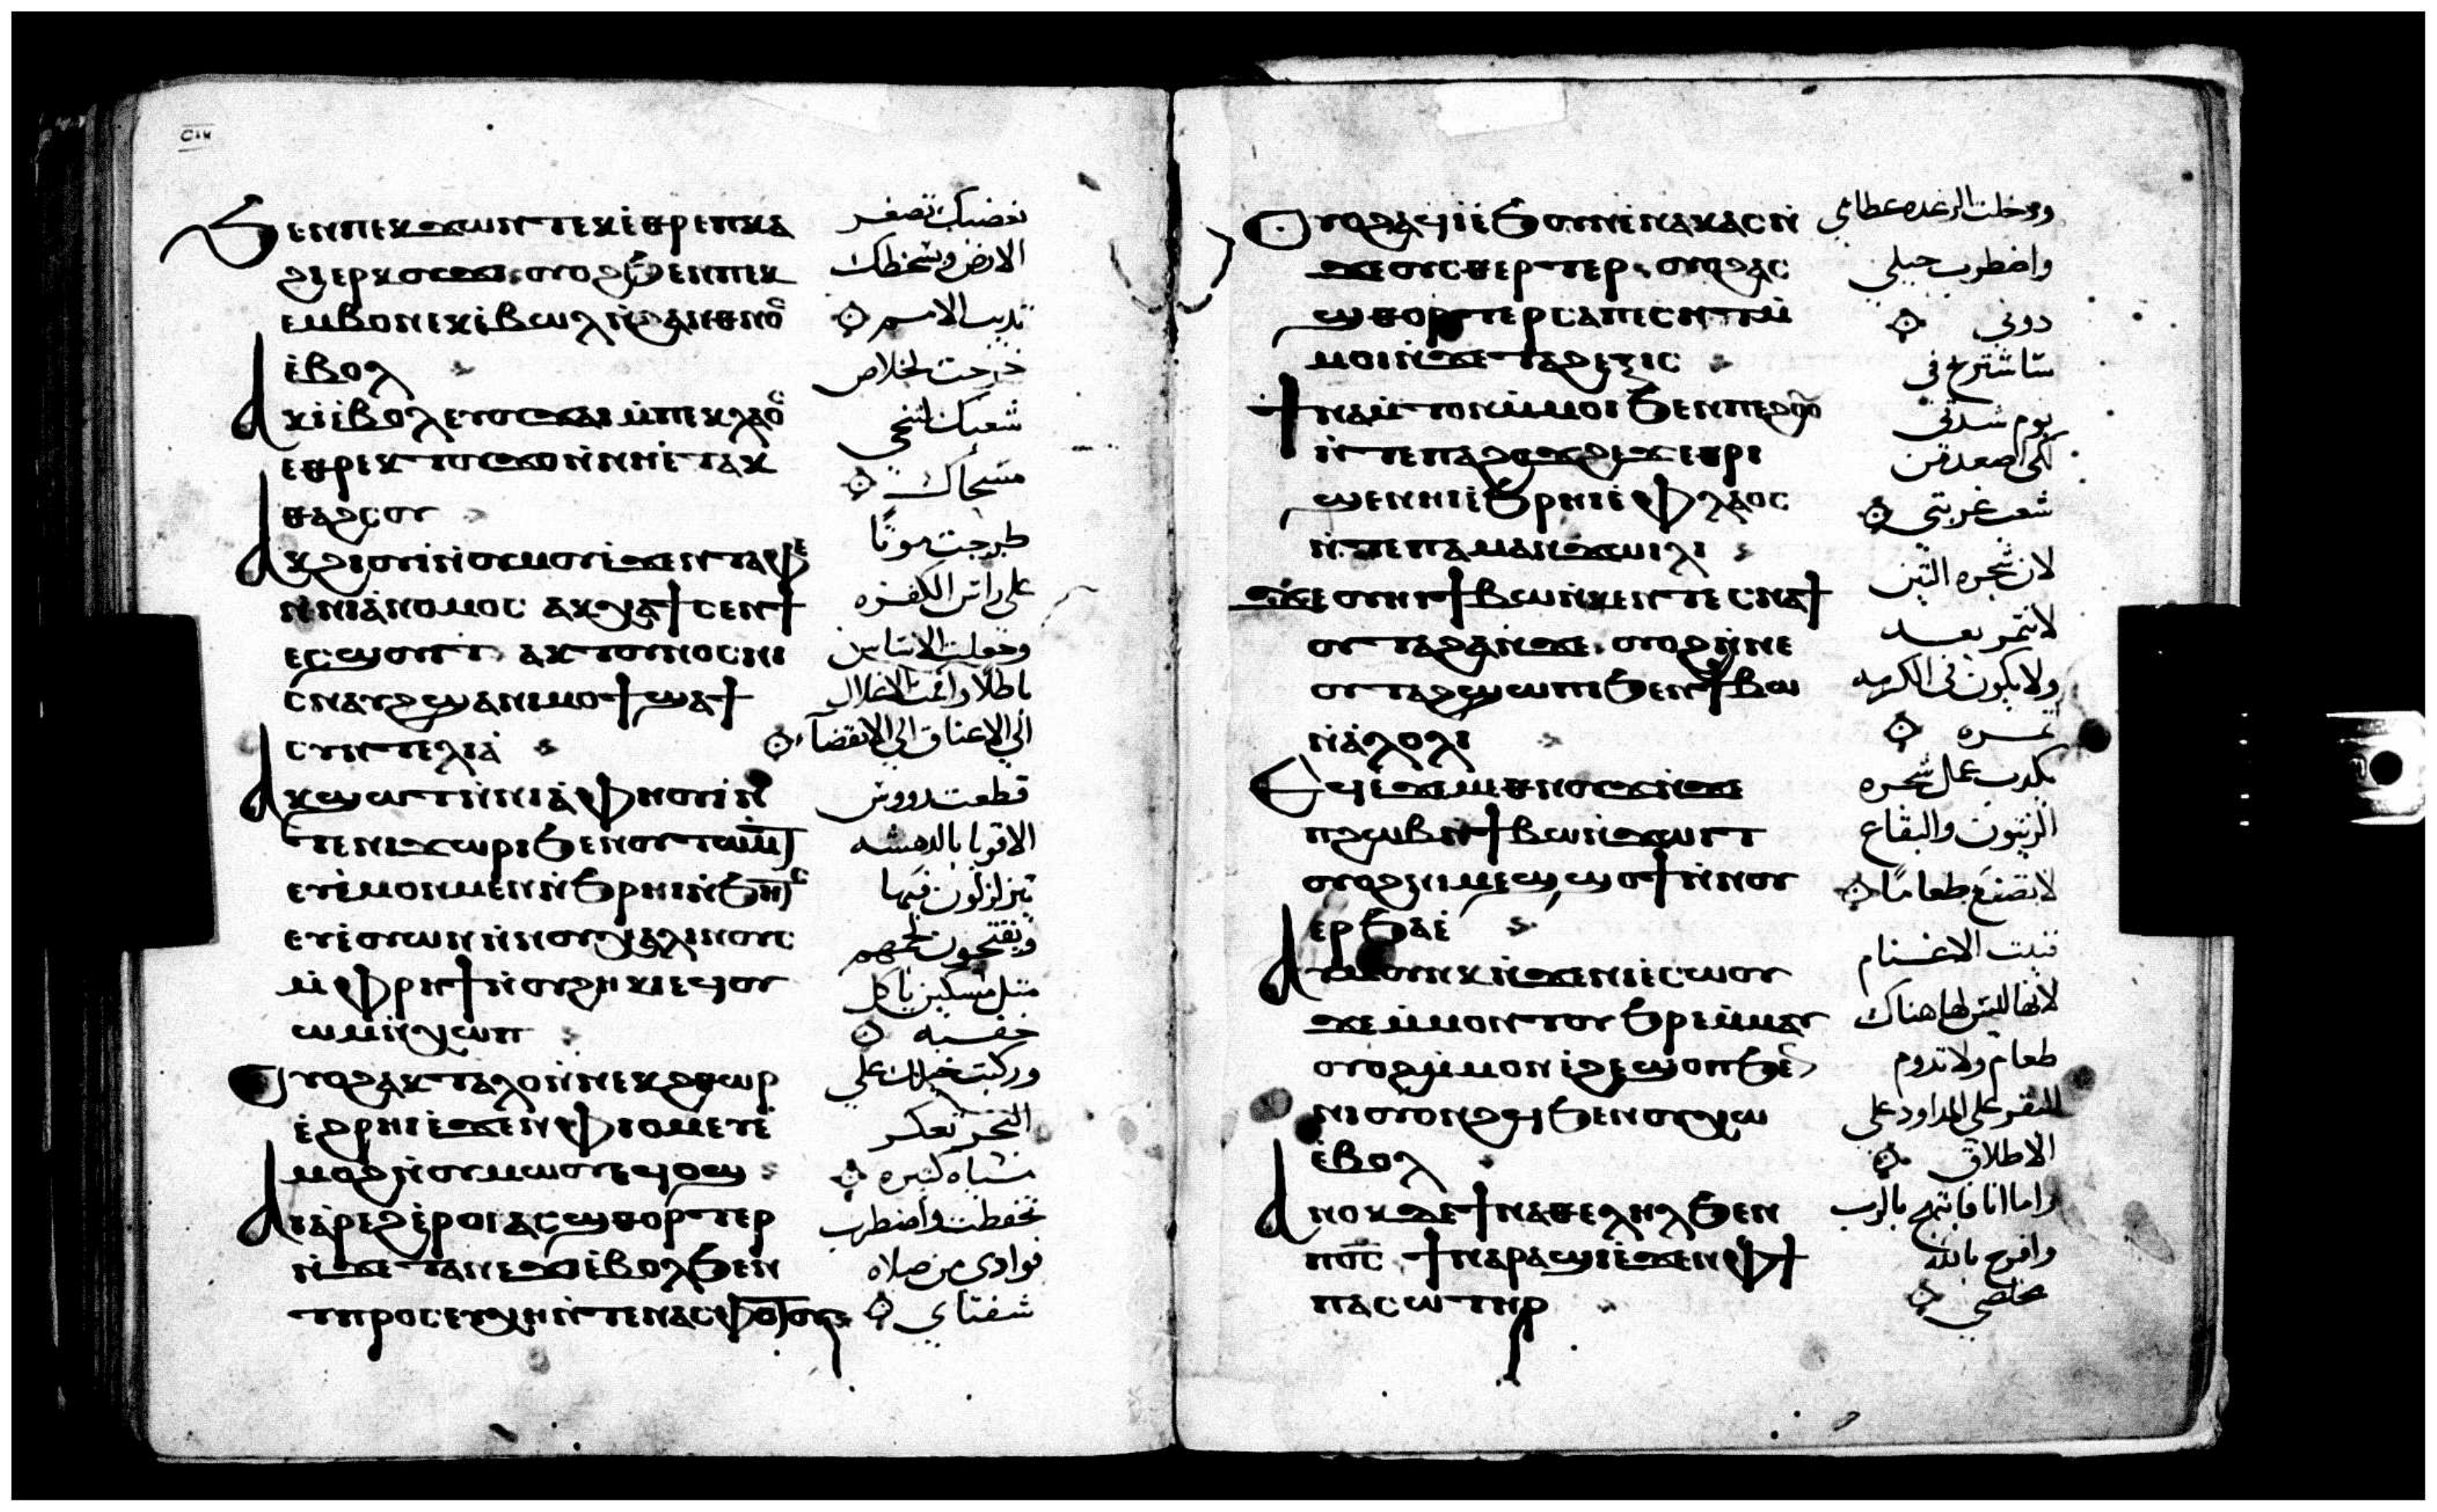 Ϧⲉⲛⲡⲉⲕϫⲱⲛⲧⲉⲕⲉ̀ⲑⲣⲉⲡⲕⲁ
ϩⲓⲉⲣⲕⲟⲩϫⲓ ⲟⲩⲟϩϦⲉⲛⲡⲉⲕ
ⲉⲙⲃⲟⲛⲉⲕⲉ̀ⲃⲱⲗⲛ̀ϩⲁⲛⲉⲑⲛⲟⲥ
ⲉ̀ⲃⲟⲗ
ⲁⲕⲓ̀ⲉ̀ⲃⲟⲗⲉⲩⲟⲩϫⲁⲓⲙ̀ⲡⲉⲕⲗⲁⲟⲥ
ⲉⲑⲣⲉⲕⲧⲟⲩϫⲟⲛ̀ⲛⲏⲉ̀ⲧⲁⲕ
ⲑⲁϩⲥⲟⲩ
ⲁⲕϩⲓⲟⲩⲓ̀ⲛ̀ⲟⲩⲙⲟⲩⲉ̀ϫⲉⲛⲧⲁⲫⲉ
ⲛ̀ⲛⲓⲁ̀ⲛⲟⲙⲟⲥ ⲁⲕϣⲁϯⲥⲉⲛϯ
ⲉϥϣⲟⲩⲓⲧ ⲁⲕⲧⲟⲩⲛⲟⲥⲛⲓ
ⲥⲛⲁⲩϩϣⲁⲛⲙ̀ⲙⲟϯϣⲁϯ
ⲥⲩⲛⲧⲉⲗⲓⲁ̀
ⲁⲕϣⲱⲧⲛ̀ⲛⲓⲁ̀ⲫⲏⲟⲩⲓ̀ⲛ̀
ⲧⲉⲛⲓϫⲱⲣⲓϦⲉⲛⲟⲩⲧⲱⲙⲧ
ⲉⲩⲉ̀ⲙⲟⲛⲙⲉⲛⲛ̀Ϧⲣⲏⲓⲛ̀Ϧⲏⲧⲥ
ⲉⲩⲉ̀ⲟⲩⲱⲛⲛ̀ⲛⲟⲩⲭⲁⲗⲓⲛⲟⲩⲥ
ⲙ̀ⲫⲣⲏϯⲛ̀ⲟⲩϩⲏⲕⲓⲉϥⲟⲩ
ⲱⲙⲛ̀ⲭⲱⲡ
ⲟⲩⲟϩⲁⲕⲧⲁⲗⲟⲛ̀ⲛⲉⲕϩⲑⲱⲣ
ⲉ̀ϩⲣⲏⲓⲉ̀ϫⲉⲛⲫⲓⲟⲙⲉⲩⲉ̀
ⲙⲟϩⲛ̀ⲟⲩⲙⲱⲟⲩⲉϥⲟϣ
ⲁⲓⲁ̀ⲣⲉϩⲉ̀ⲣⲟⲓⲁⲥϣⲑⲟⲣⲧⲉⲣ
ⲛ̀ϫⲉⲧⲁⲛⲉϫⲓⲉ̀ⲃⲟⲗϦⲉⲛ
ⲧⲡⲣⲟⲥⲉⲩⲭⲏⲛ̀ⲧⲉⲛⲁⲥⲫⲟⲧⲟⲩ
الارض وبسخطك
تديب الامم
خرجت لخلاص
شعبك لتنجي
مسحاك
طرحت موتًا
على راس الكفره
الي الاعناق الي الانقضاء
قطعت رووس
الاقويا بالدهشه
يتزلزلون فيها
ويفتحون لجمهم
مثل مسكين ياكل
خفيه
وركبت خيلك علي
البحر تعكر
مياه كثيره
تحفظت واضطرب
فوادي من صلاه
شفتاي
ⲟⲩⲟϩⲁϥⲓ̀ⲉ̀Ϧⲟⲩⲛⲉ̀ⲛⲁⲕⲁⲥⲛ̀
ϫⲉⲟⲩⲥⲑⲉⲣⲧⲉⲣ ⲟⲩⲟϩⲁⲥ
ϣⲑⲟⲣⲧⲉⲣⲥⲁⲡⲉⲥⲏⲧⲙ̀
ⲙⲟⲓⲛ̀ϫⲉⲧⲁϩⲉⲝⲓⲥ
ϯⲛⲁⲙ̀ⲧⲟⲛⲙ̀ⲙⲟⲓϦⲉⲛⲡⲉϩⲟⲟⲩ
ⲛ̀ⲧⲉⲡⲁϩⲟϫϩⲉϫⲉⲑⲣⲓ
ϣⲉⲛⲏⲓⲉ̀Ϧⲣⲏⲓⲉ̀ⲫⲗⲁⲟⲥ
ⲛ̀ⲧⲉⲡⲁⲙⲁⲛϫⲱⲓⲗⲓ
ϫⲉⲟⲩⲏⲓϯⲃⲱⲛ̀ⲕⲉⲛⲧⲉⲥⲛⲁϯ
ⲟⲩⲧⲁϩⲁⲛϫⲉ ⲟⲩⲟϩⲛ̀ⲛⲉ
ⲟⲩⲧⲁϩϣⲱⲡⲓϦⲉⲛϯⲃⲱ
ⲛ̀ⲁ̀ⲗⲟⲗⲓ
ⲉϥⲉ̀ϫⲉⲙⲉⲑⲛⲟⲩϫⲛ̀ϫⲉ
ⲡϩⲱⲃⲛ̀ϯⲃⲱⲛ̀ϫⲱⲓⲧ
ⲟⲩⲟϩⲛⲓⲙⲉϣϣⲟϯⲛ̀ⲛⲟⲩ
ⲉⲣϦⲣⲉ̀
ⲁⲩⲙⲟⲩⲛⲕⲛ̀ϫⲉⲛⲓⲉ̀ⲥⲱⲟⲩ
ϫⲉⲙ̀ⲙⲟⲛⲧⲟⲩϦⲣⲉⲙ̀ⲙⲁⲩ
ⲟⲩⲟϩⲙ̀ⲙⲟⲛⲉ̀ϩⲉϣⲟⲡϦⲉⲛ
ⲛⲓⲟⲩⲟⲛϩϥϦⲉⲛⲟⲩⲭⲱ
ⲉ̀ⲃⲟⲗ
ⲁⲛⲟⲕϫⲉϯⲛⲁⲑⲉⲗⲏⲗϦⲉⲛ
ⲡⲟ̅ⲥ̅ ϯⲛⲁⲣⲁϣⲓⲉ̀ϫⲉⲛⲫϯ
ⲡⲁⲥⲱⲧⲏⲣ
ودخلت الرعده عظامي
دوني
يوم شدتي
شعب غربتي
لان شجره التين
لا تثمر بعد
ولا يكون في الكرمه
ثمره
يكدب عمل شجره
الزيتون والبقاع
لا تصنع طعامًا
فنيت الاغنام
لانها ليس لها هناك
طعام ولا تدوم
البقر على المداود على
الاطلاق
واما انا فابتهج بالرب
وافرح بالله
مخلصي